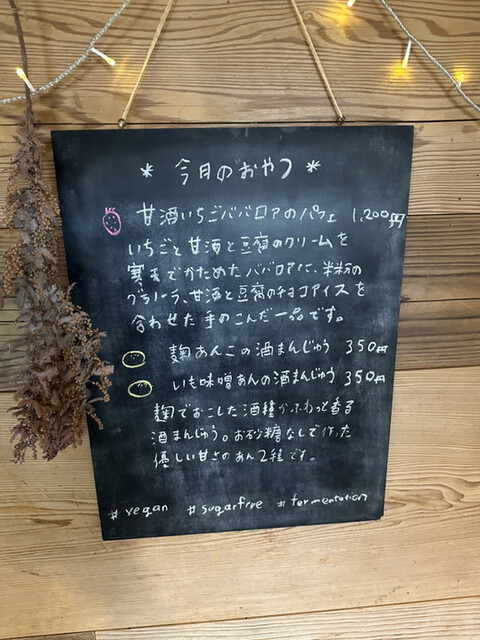 * 今月のおやつ *
甘酒いちごババロアのパフェ 1,200円
いちごと甘酒と豆腐のクリームを
寒天でかためたババロアに、米粉の
グラノーラ、甘酒と豆腐のチョコアイスを
合わせた手のこんだ一品です。
麹あんこの酒まんじゅう 350円
いも味噌あんの酒まんじゅう 350円
麹でおこした酒種がふわっと香る
酒まんじゅう。お砂糖なしで作った
優しい甘さのあん2種です。
#vegan #sugarfree #fermentation